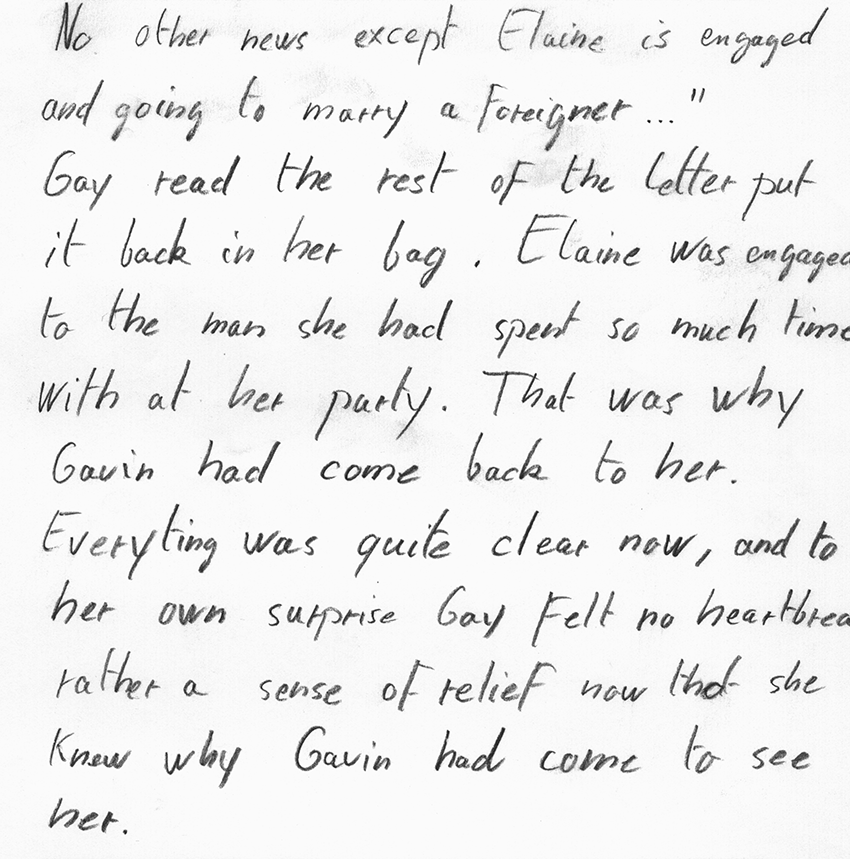 No other news except Elaine is engaged
and going to marry a Foreigner ..."
Gay read the rest of the letter put
it back in her bag . Elaine was engaged
to the man she had spent so much time
with at her party. That was why
Gavin had come back to her.
Everyting was quite clear now, and to
her own surprise Gay Felt no heartbrea
rather a sense of relief now that she
Knew why Gavin had come to see
her.